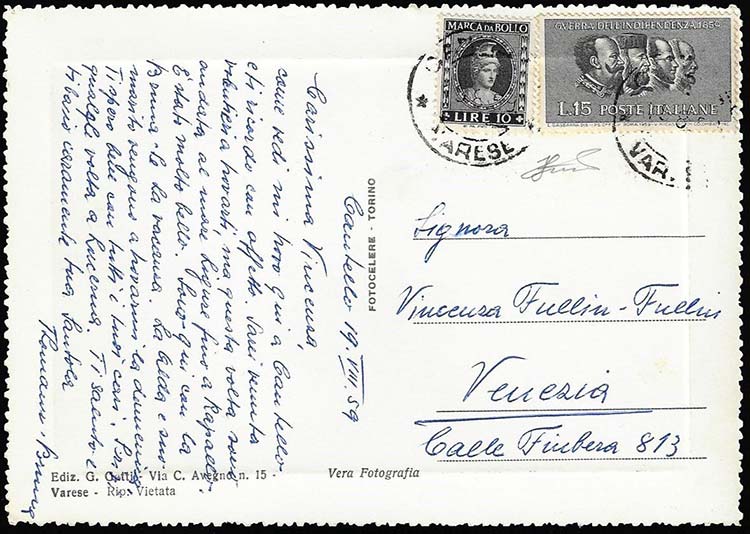 MARCA DA BOLLO
LIRE 10
GUERRA DELL'INDIPENDENZA 1859
L.15 POSTE ITALIANE
VARESE
VAR
Cantello 19 VIII.59
Carissima Vincenza,
come vedi mi trovo qui a Cantello
e ti ricordo con affetto. Sarei venuta
volentieri a trovarti, ma questa volta sono
andata al mare Ligure fino a Rapallo.
È stato molto bello. Sono qui con la
Bruna in vacanza. La Gilda e suo
marito vengono a trovarmi la domenica
Ti spero bene con tutti i tuoi cari.
qualche volta a Lucerna. Ti saluto e
ti bacio caramente tua Santola
Romano Bruna
FOTOCELERE - TORINO
Signora
Vincenza Fullin-Fullin
Venezia
Calle Fiubera 813
Ediz. G. Via C. Avegno n. 15 -
Varese - Rip. Vietata
Vera Fotografia